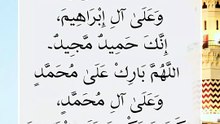 وَعَلَىٰ آلِ إِبْرَاهِيمَ،
إِنَّكَ حَمِيدٌ مَّجِيدٌ۔
اللَّهُمَّ بَارِكْ عَلَىٰ مُحَمَّدٍ
وَعَلَىٰ آلِ مُحَمَّدٍ،